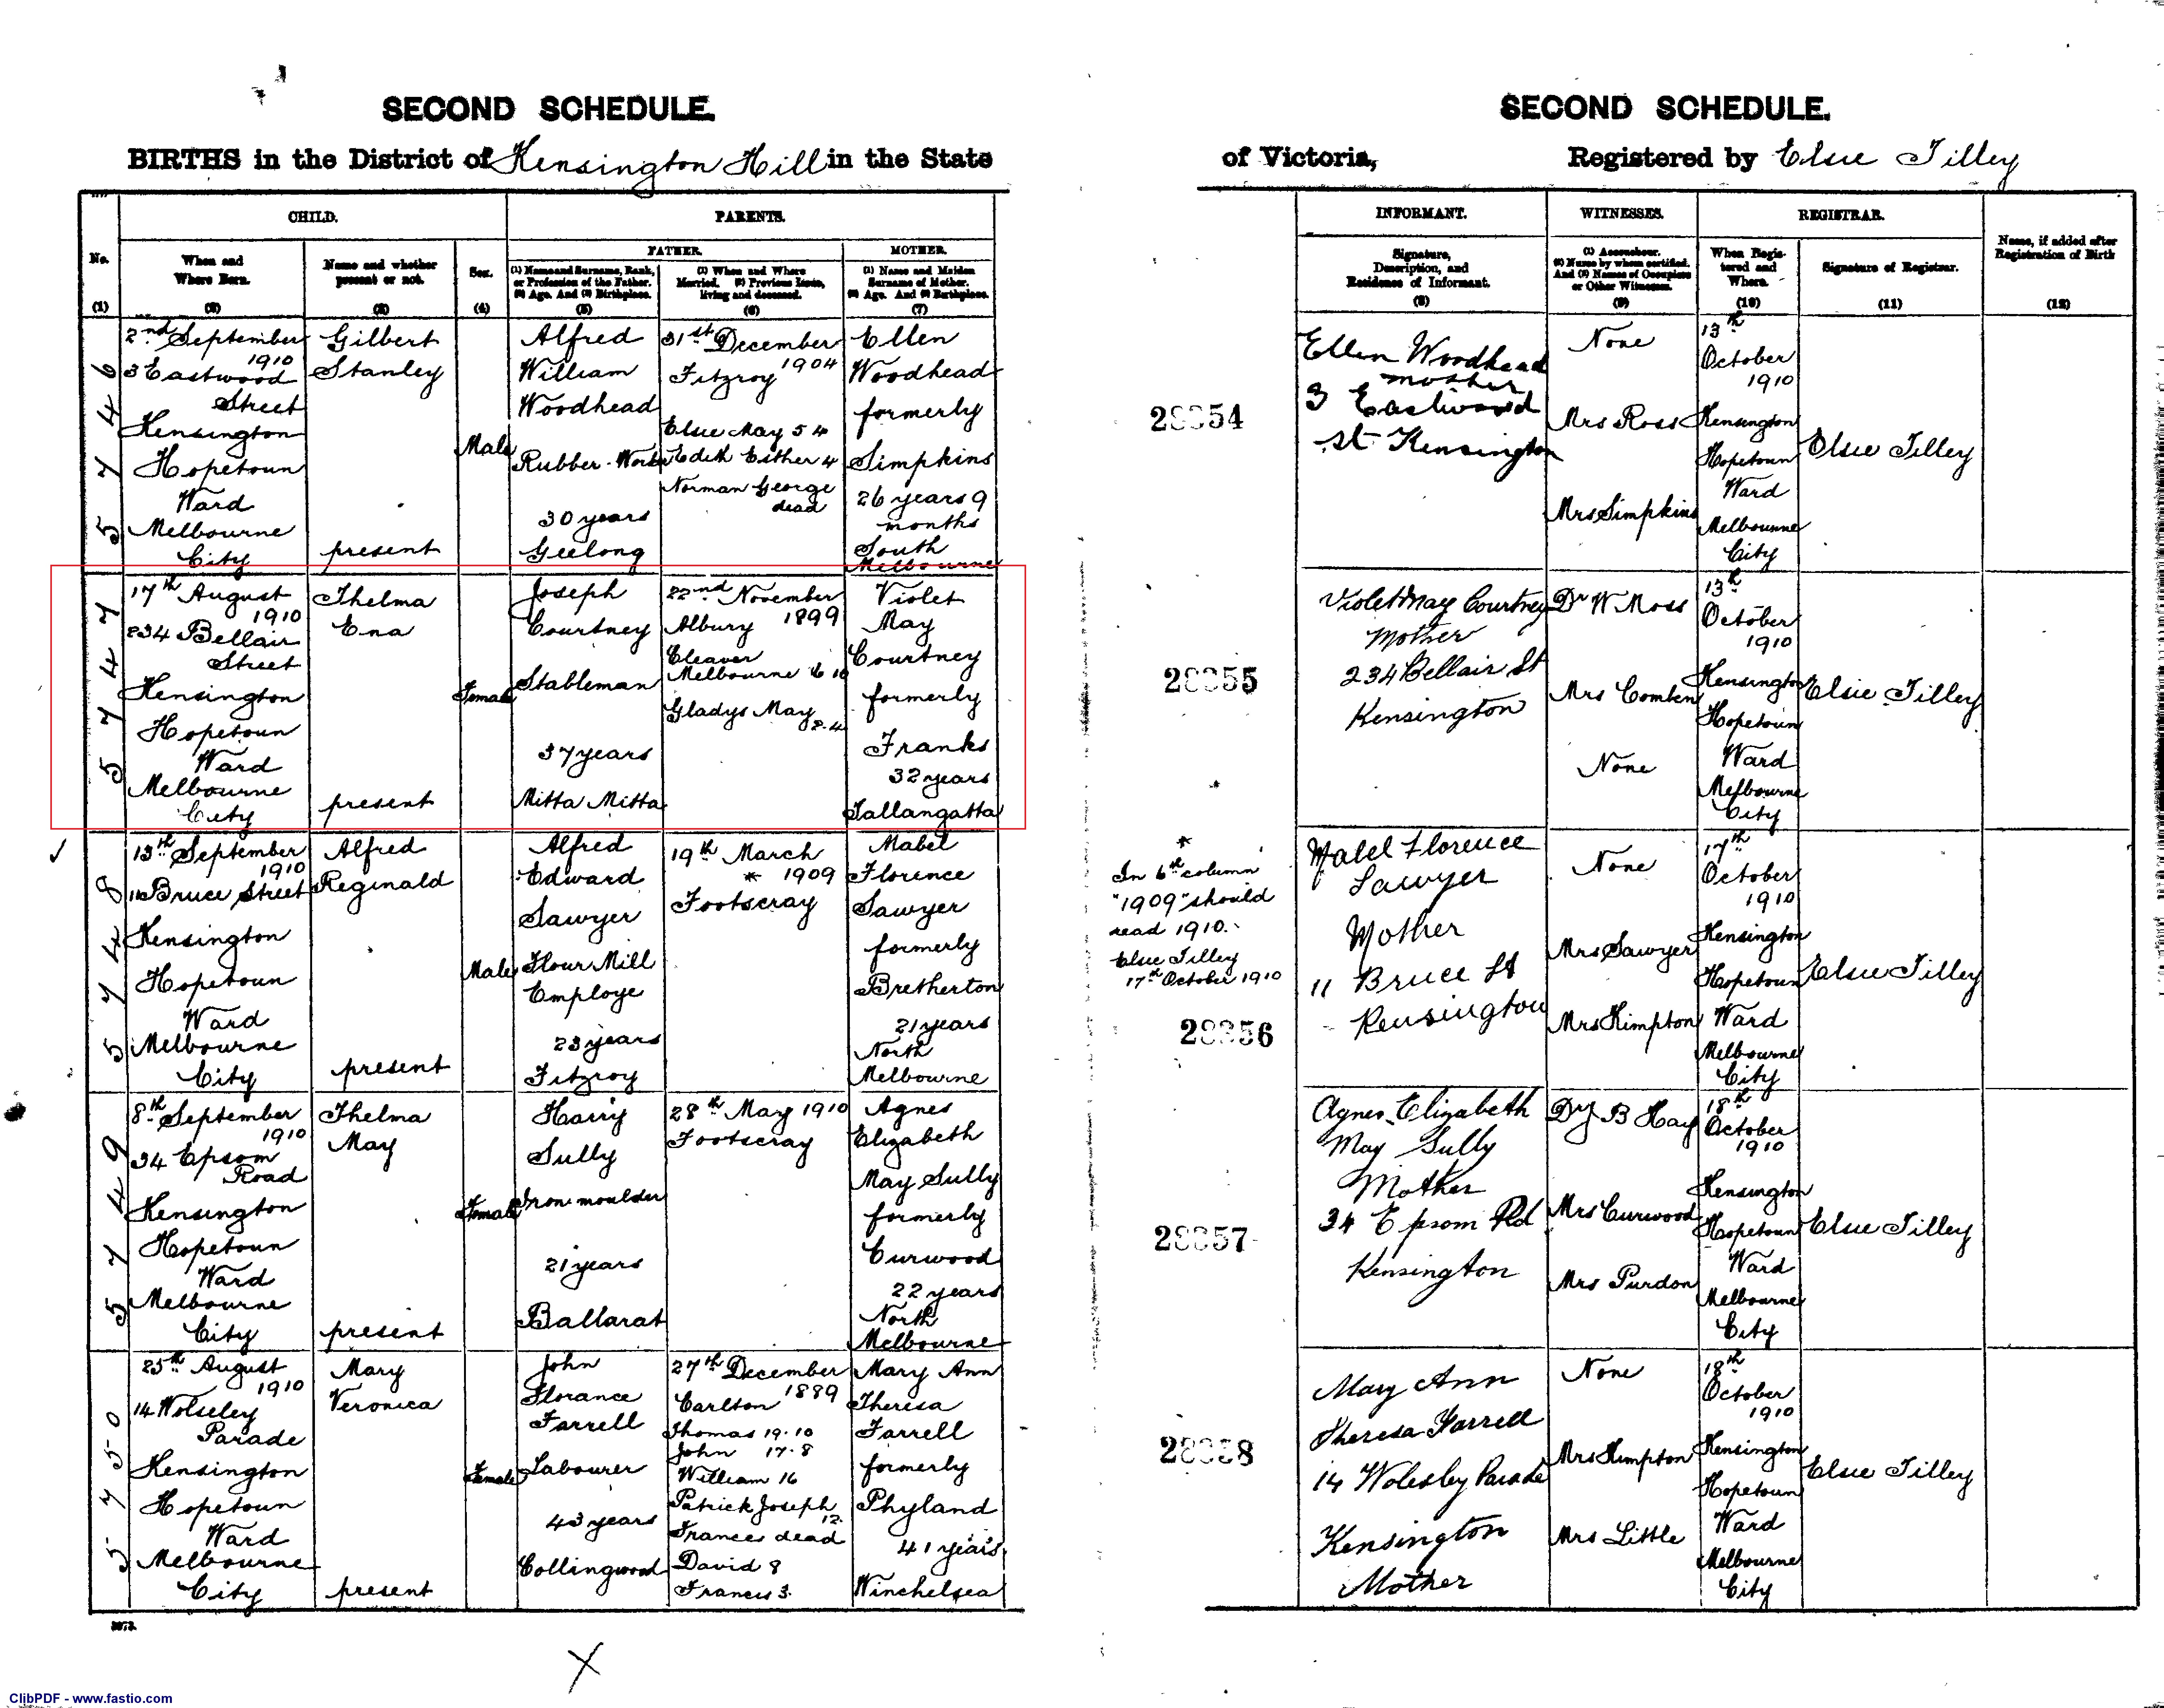 SECOND SCHEDULE.
BIRTHS in the District of Kensington Hill in the State
CHILD.
PARENTS.
FATHER.
MOTHER.
No.
When and
Where Born.
Name and whether
present or not.
Sex.
(1) Name and Surname, Rank,
or Profession of the Father.
(2) Age. And (3) Birthplace.
(1) When and Where
Married. (2) Previous Issue,
living and deceased.
(1) Name and Maiden
Surname of Mother.
(2) Age. And (3) Birthplace.
(1)
(2)
(3)
(4)
(5)
(6)
(7)
5746
2nd September
1910
3 Eastwood
Street
Kensington
Hopetoun
Ward
Melbourne
City
Gilbert
Stanley
present
Male
Alfred
William
Woodhead
Rubber-Worker
30 years
Geelong
31st December
1904
Fitzroy
Elsie May 5 4
Edith Esther 4
Norman George
dead
Ellen
Woodhead
formerly
Simpkins
26 years 9
months
South
Melbourne
5747
17th August
1910
234 Bellair
Street
Kensington
Hopetoun
Ward
Melbourne
City
Thelma
Ena
present
Female
Joseph
Courtney
Stableman
37 years
Mitta Mitta
22nd November
1899
Albury
Eleaver
Melbourne 6 10
Gladys May
2.4
Violet
May
Courtney
formerly
Franks
32 years
Tallangatta
5748
13th September
1910
11 Bruce Street
Kensington
Hopetoun
Ward
Melbourne
City
Alfred
Reginald
present
Male
Alfred
Edward
Sawyer
Flour Mill
Employe
23 years
Fitzroy
19th March
* 1909
Footscray
Mabel
Florence
Sawyer
formerly
Bretherton
21 years
North
Melbourne
5749
8th September
1910
34 Epsom
Road
Kensington
Hopetoun
Ward
Melbourne
City
Thelma
May
present
Female
Harry
Sully
Iron moulder
21 years
Ballarat
28th May 1910
Footscray
Agnes
Elizabeth
May Sully
formerly
Curwood
22 years
North
Melbourne
5750
25th August
1910
14 Wolseley
Parade
Kensington
Hopetoun
Ward
Melbourne
City
Mary
Veronica
present
Female
John
Florance
Farrell
Labourer
43 years
Collingwood
27th December
1889
Carlton
Thomas 19.10
John 17.8
William 16
Patrick Joseph
12.
Frances dead
David 8
Francis 3.
Mary Ann
Theresa
Farrell
formerly
Phyland
41 years.
Winchelsea
SECOND SCHEDULE.
of Victoria, Registered by Elsie Tilley
INFORMANT.
WITNESSES.
REGISTRAR.
Signature,
Description, and
Residence of Informant.
(1) Accoucheur.
(2) Nurse by whom certified.
And (3) Names of Occupiers
or Other Witnesses.
When Regis-
tered and
Where.
Signature of Registrar.
Name, if added after
Registration of Birth
(8)
(9)
(10)
(11)
(12)
28354
Ellen Woodhead
mother
3 Eastwood
St Kensington
None
Mrs Ross
Mrs Simpkins
13th
October
1910
Kensington
Hopetoun
Ward
Melbourne
City
Elsie Tilley
28355
Violet May Courtney
Mother
234 Bellair St
Kensington
Dr W Moss
Mrs Comben
None
13th
October
1910
Kensington
Hopetoun
Ward
Melbourne
City
Elsie Tilley
*
In 6th column
"1909" should
read 1910.
Elsie Tilley
17th October 1910
28356
Mabel Florence
Sawyer
Mother
11 Bruce St
Kensington
None
Mrs Sawyer
Mrs Kimpton
17th
October
1910
Kensington
Hopetoun
Ward
Melbourne
City
Elsie Tilley
28357
Agnes Elizabeth
May Sully
Mother
34 Epsom Rd
Kensington
Dr J B Hay
Mrs Curwood
Mrs Purdon
18th
October
1910
Kensington
Hopetoun
Ward
Melbourne
City
Elsie Tilley
28358
Mary Ann
Theresa Farrell
14 Wolesby Parade
Kensington
Mother
None
Mrs Kimpton
Mrs Little
18th
October
1910
Kensington
Hopetoun
Ward
Melbourne
City
Elsie Tilley
ClibPDF - www.fastio.com